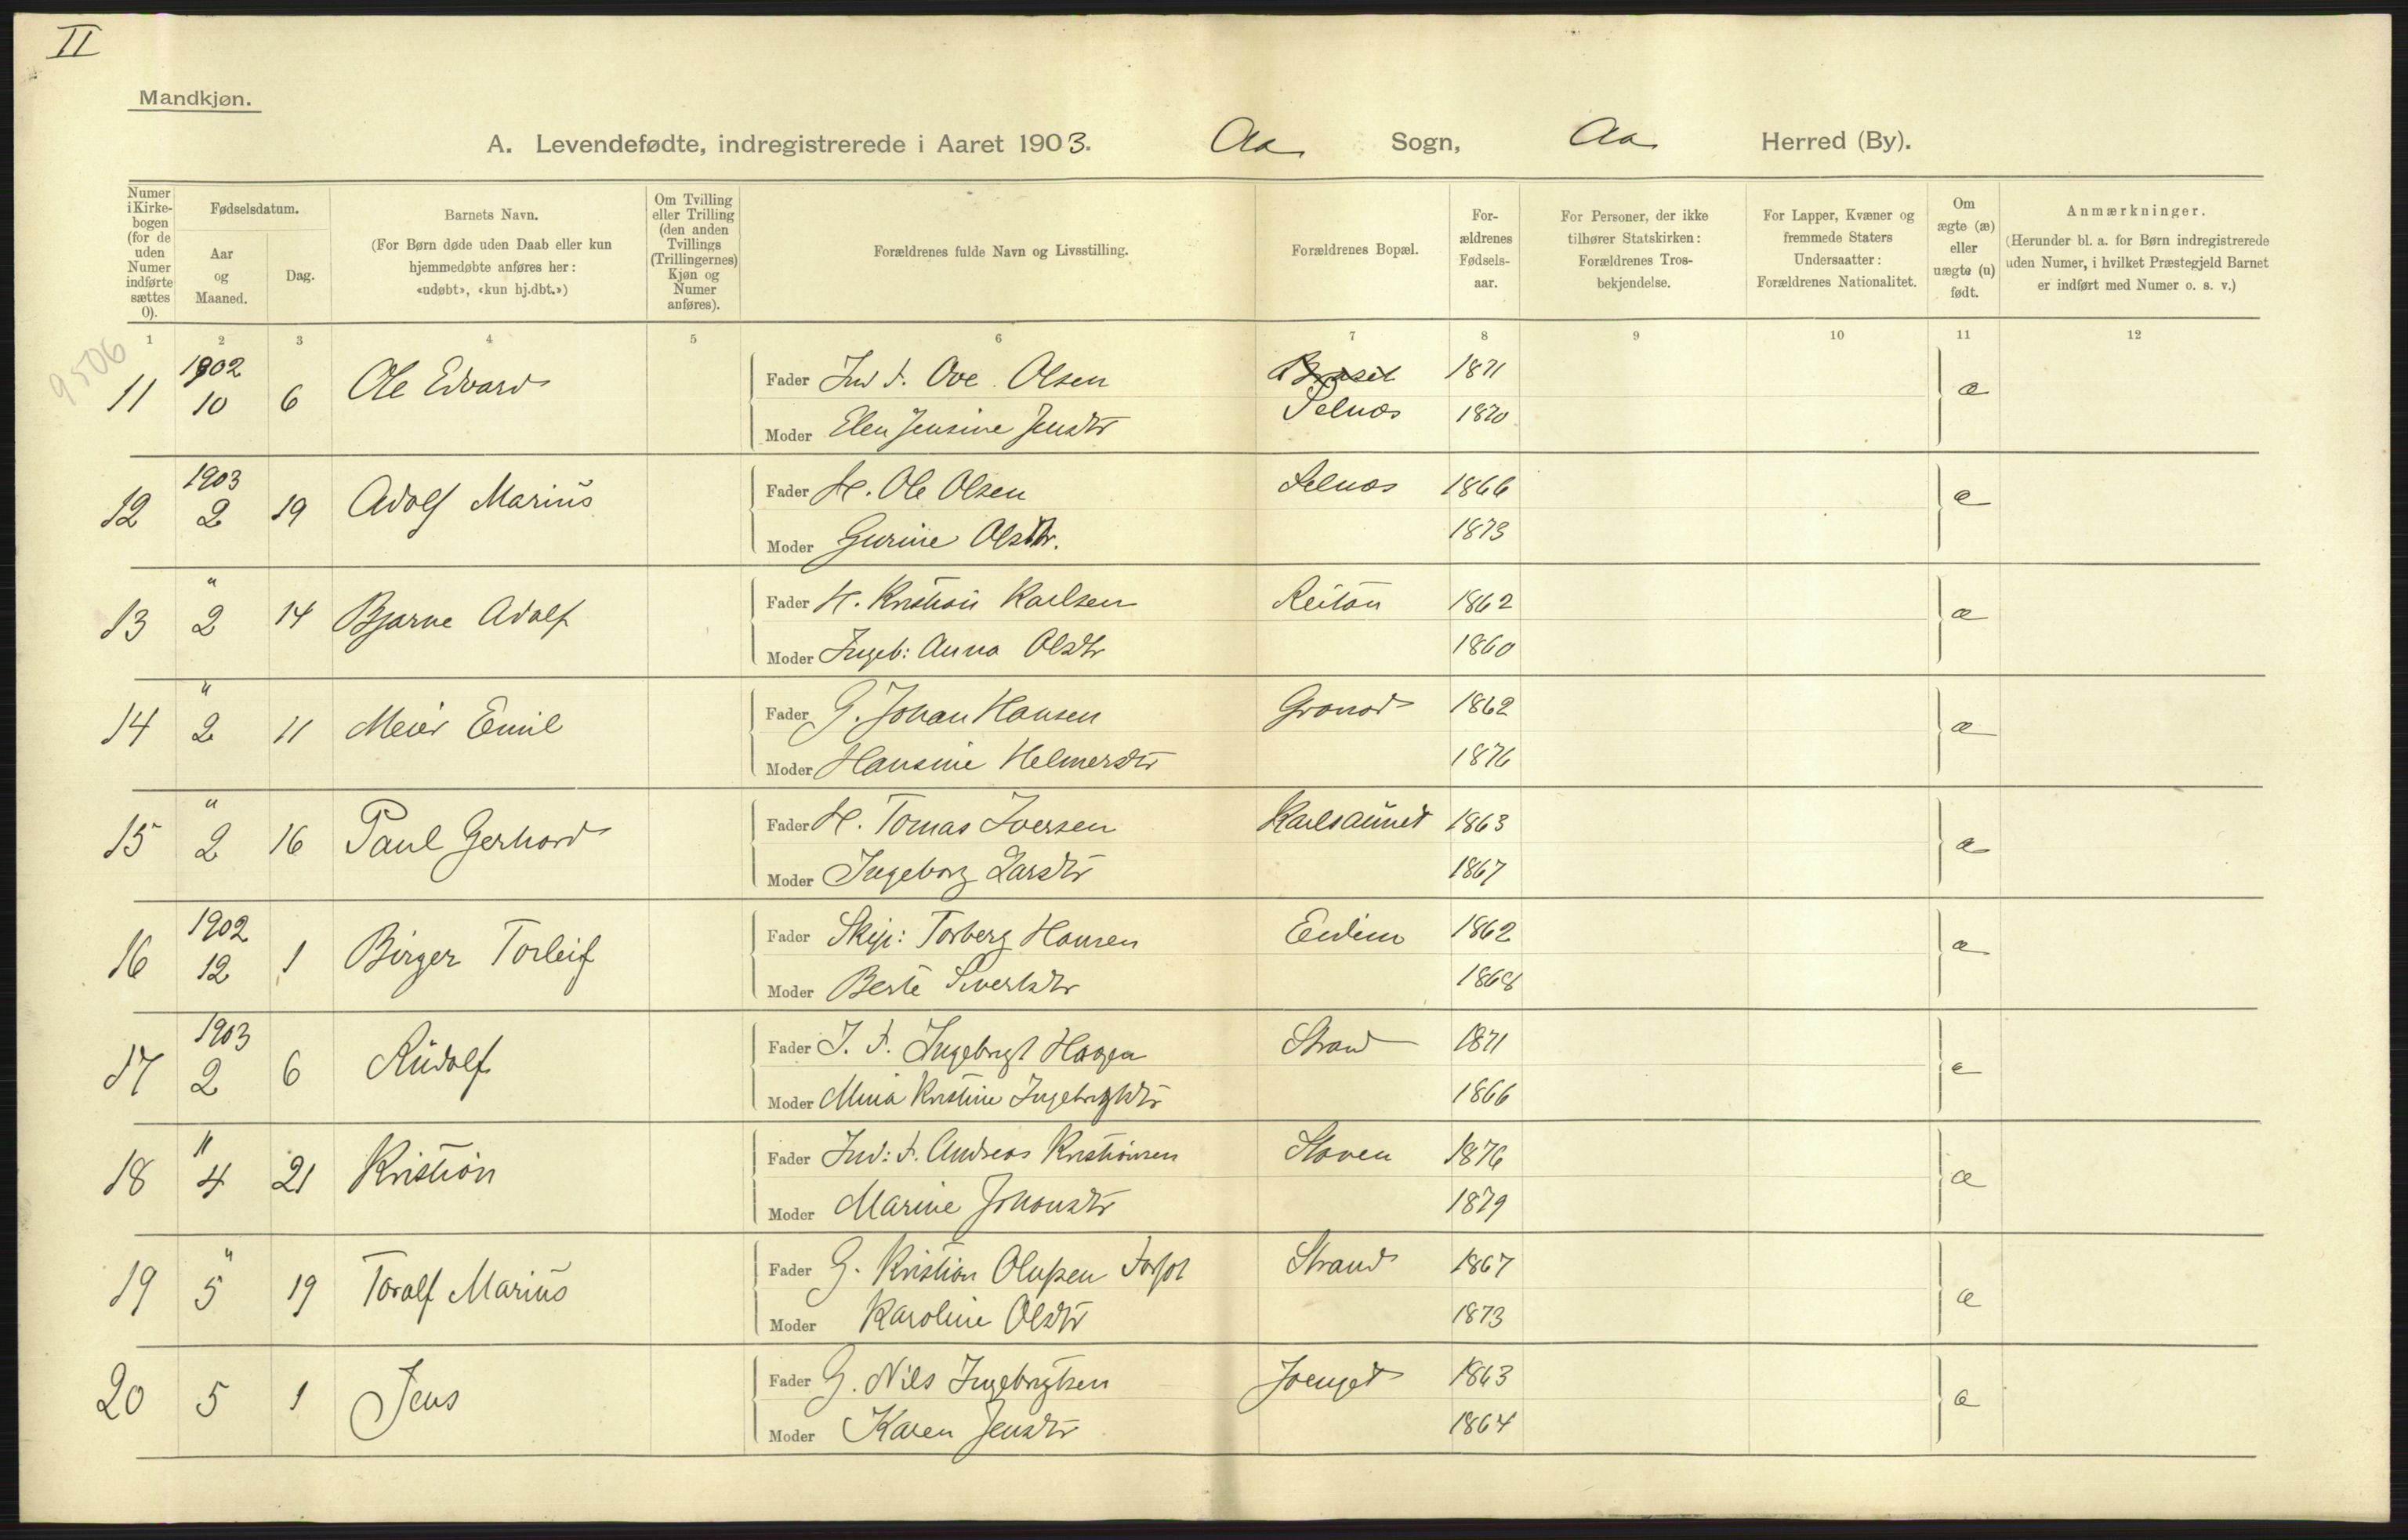 II
Mandkjøn.
A. Levendefødte, indregistrerede i Aaret 1903. Aa Sogn, Aa Herred (By).
Numer i Kirkebogen (for de uden Numer indførte sættes 0).
Fødselsdatum.
Aar og Maaned.
Dag.
Barnets Navn.
(For Børn døde uden Daab eller kun hjemmedøbte anføres her: «udøbt», «kun hj.dbt.»)
Om Tvilling eller Trilling (den anden Tvillings (Trillingernes) Kjøn og Numer anføres).
Forældrenes fulde Navn og Livsstilling.
Forældrenes Bopæl.
Forældrenes Fødselsaar.
For Personer, der ikke tilhører Statskirken: Forældrenes Trosbekjendelse.
For Lapper, Kvæner og fremmede Staters Undersaatter: Forældrenes Nationalitet.
Om ægte (æ) eller uægte (u) født.
Anmærkninger.
(Herunder bl. a. for Børn indregistrerede uden Numer, i hvilket Præstegjeld Barnet er indført med Numer o. s. v.)
1 2 3 4 5 6 7 8 9 10 11 12
9506
11 1902 10 6 Ole Edvard Fader Ind. F. Ove Olsen 1871 æ
Moder Elen Jensine Jensdtr Selnæs 1870
12 1903 2 19 Adolf Marius Fader H. Ole Olsen Selnæs 1866 æ
Moder Gurine Olsdtr. 1873
13 " 2 14 Bjarne Adolf Fader H. Kristian Karlsen Reitan 1862 æ
Moder Ingeb: Anna Olsdtr 1860
14 " 2 11 Meier Emil Fader G. Johan Hansen 1862 æ
Moder Hansine Helmersdtr 1876
15 " 2 16 Paul Gerhard Fader H. Tomas Iversen Karlsaunet 1863 æ
Moder Ingeborg Larsdtr 1867
16 1902 12 1 Birger Torleif Fader Skip: Torberg Hansen 1862 æ
Moder Berte Sivertsdtr 1868
17 1903 2 6 Rudolf Fader I. F. Ingebrigt Hagen Strand 1871 æ
Moder Mina Kristine Ingebrigtsdtr 1866
18 " 4 21 Kristian Fader Ind: F. Andreas Kristiansen Staven 1876 æ
Moder Marine Johansdtr 1879
19 " 5 19 Toralf Marius Fader G. Kristian Olufsen Strand 1867 æ
Moder Karoline Olsdtr 1873
20 5 1 Jens Fader G. Nils Ingebrigtsen 1863 æ
Moder Karen Jensdtr 1864